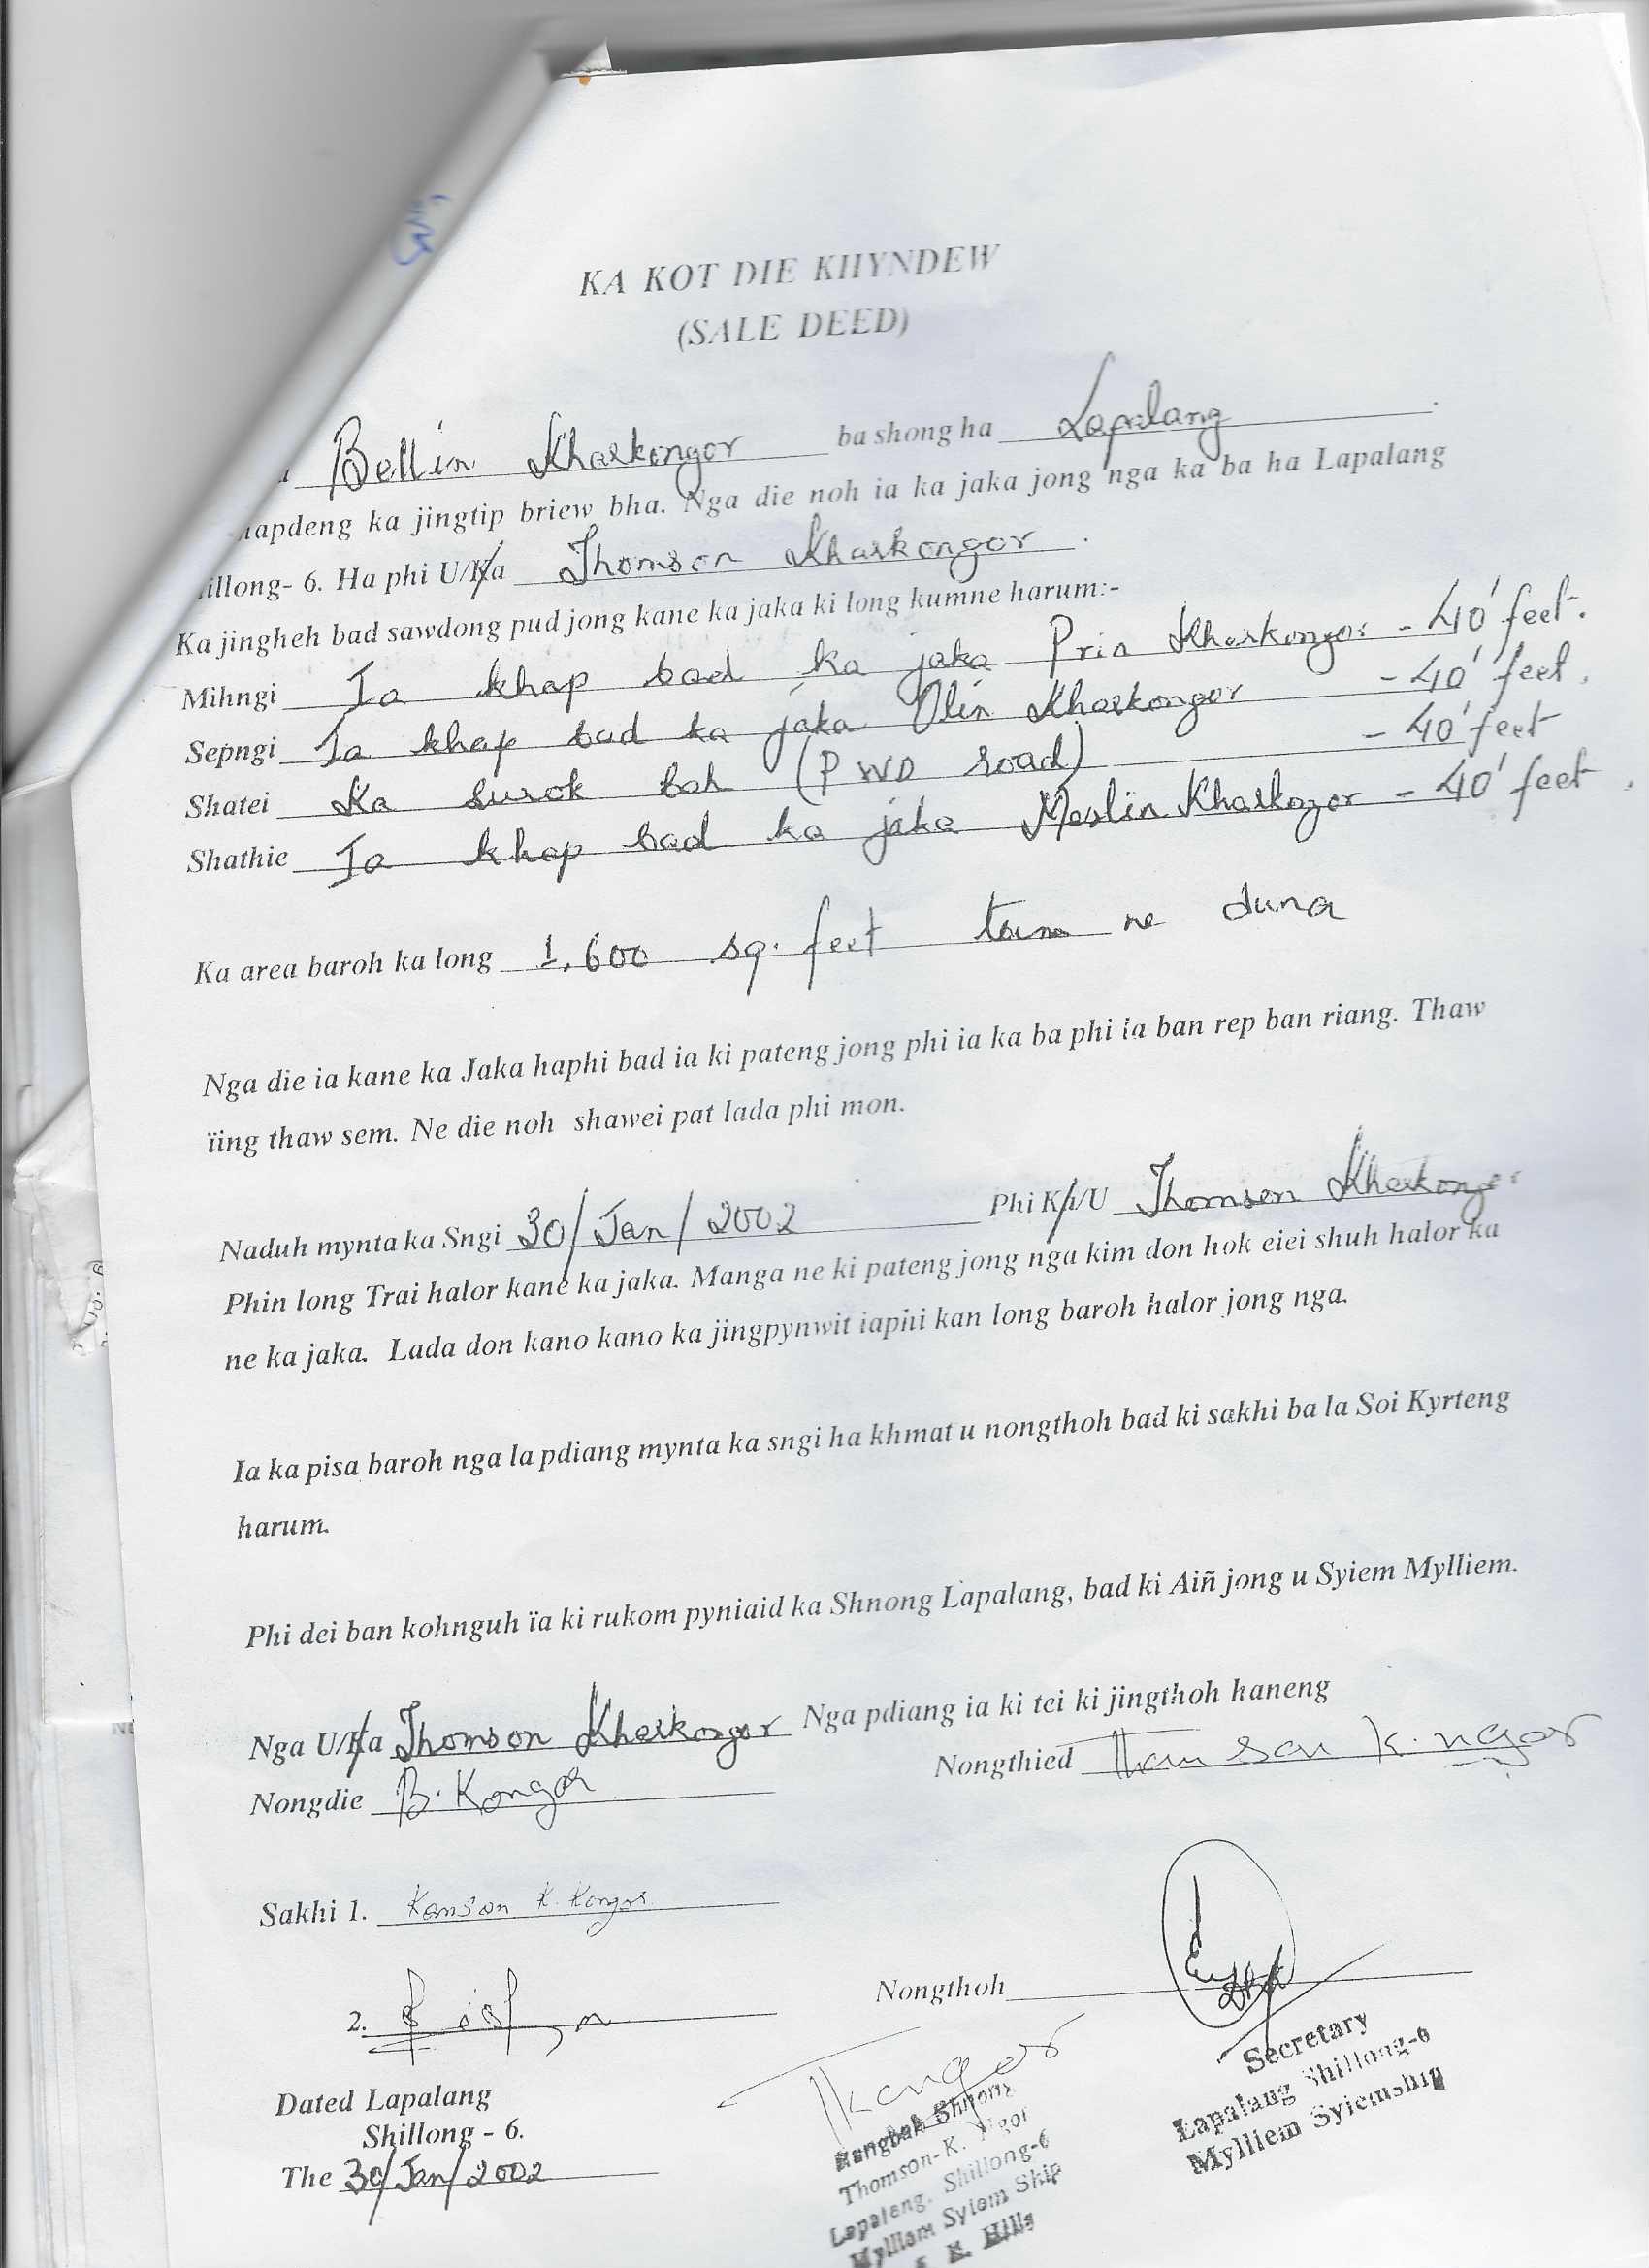 KA KOT DIE KHYNDEW
(SALE DEED)
Bellin Kharkongor ba shong ha Lapalang
hapdeng ka jingtip briew bha. Nga die noh ia ka jaka jong nga ka ba ha Lapalang
illong- 6. Ha phi U/Ka Thomson Kharkongor.
Ka jingheh bad sawdong pud jong kane ka jaka ki long kumne harum:-
Mihngi Ia khap bad ka jaka Prin Kharkongor - 40' feet.
Sepngi Ia khap bad ka jaka Olin Kharkongor - 40' feet.
Shatei Ka surok bah (PWD road) - 40' feet
Shathie Ia khap bad ka jaka Merlin Kharkongor - 40' feet.
Ka area baroh ka long 1,600 sq. feet tam ne duna
Nga die ia kane ka Jaka haphi bad ia ki pateng jong phi ia ka ba phi ia ban rep ban riang. Thaw
ïing thaw sem. Ne die noh shawei pat lada phi mon.
Naduh mynta ka Sngi 30/Jan/2002 Phi Ka/U Thomson Kharkongor
Phin long Trai halor kane ka jaka. Manga ne ki pateng jong nga kim don hok eiei shuh halor ka
ne ka jaka. Lada don kano kano ka jingpynwit iaphi kan long baroh halor jong nga.
Ia ka pisa baroh nga la pdiang mynta ka sngi ha khmat u nongthoh bad ki sakhi ba la Soi Kyrteng
harum.
Phi dei ban kohnguh ïa ki rukom pyniaid ka Shnong Lapalang, bad ki Aiñ jong u Syiem Mylliem.
Nga U/Ka Thomson Kharkongor Nga pdiang ia ki tei ki jingthoh haneng
Nongdie B. Kongor Nongthied Thomson K. ngor
Sakhi 1. Komson K. Kongor
2.
Nongthoh
Secretary
Lapalang Shillong-6
Mylliem Syiemship
Dated Lapalang
Shillong - 6.
The 30/Jan/2002
TKongor
Rangbah Shnong
Thomson-K. Ngor
Lapalang. Shillong-6
Mylliem Syiem Ship
K. Hills